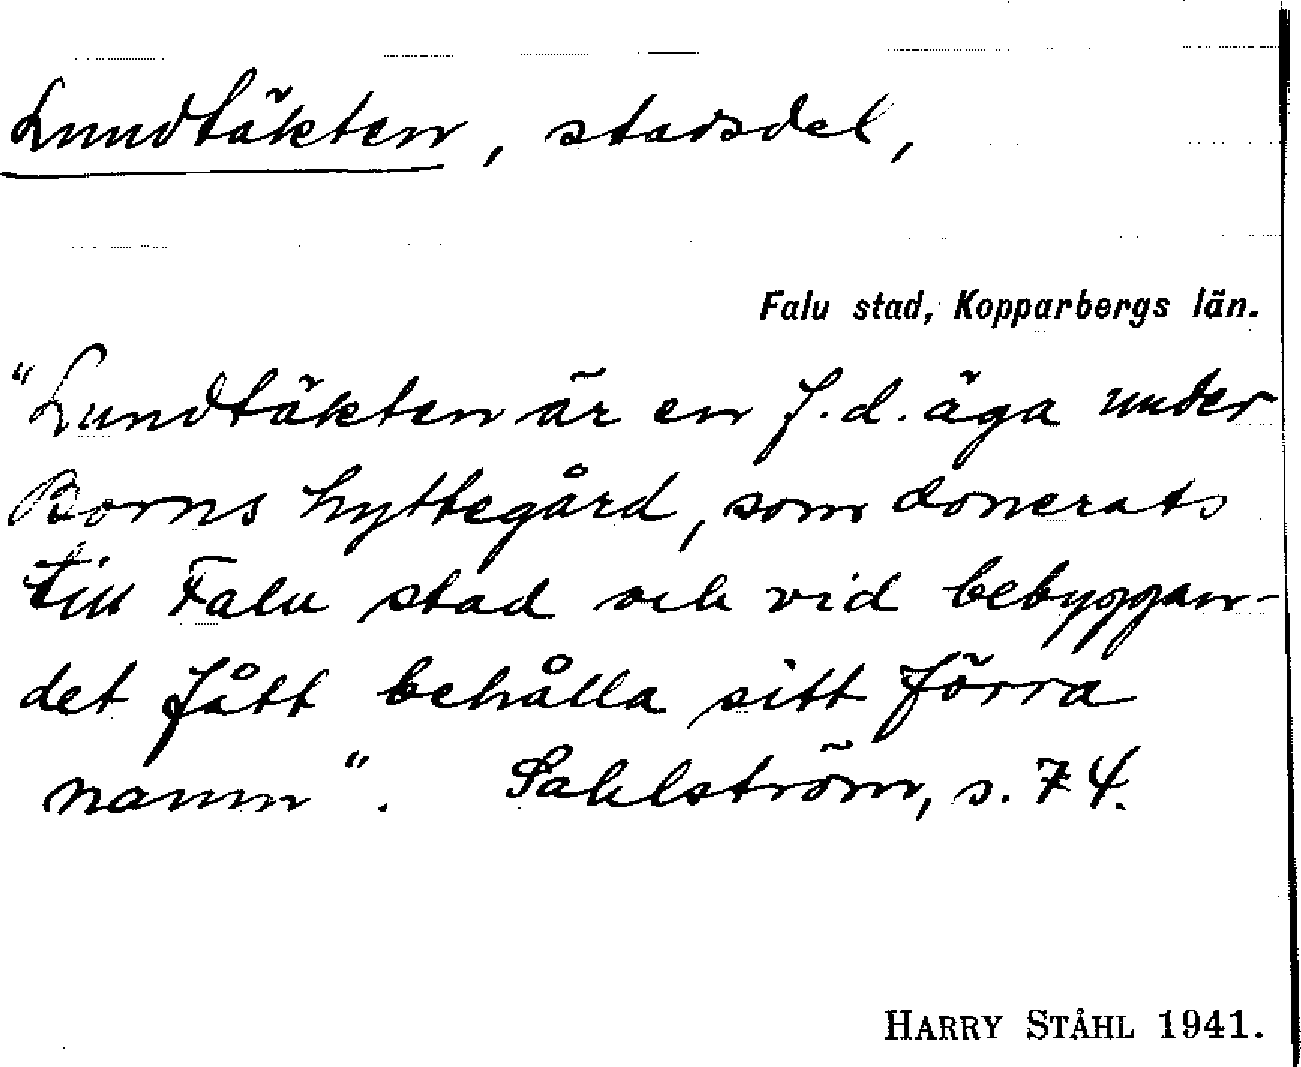 Lundtäkten, stadsdel,
Falu stad, Kopparbergs län.
"Lundtäkten är en f.d. äga under
Borns hyttegård, som donerats
till Falu stad och vid bebyggan-
det fått behålla sitt förra
namn". Sahlström, s. 74.
HARRY STÅHL 1941.